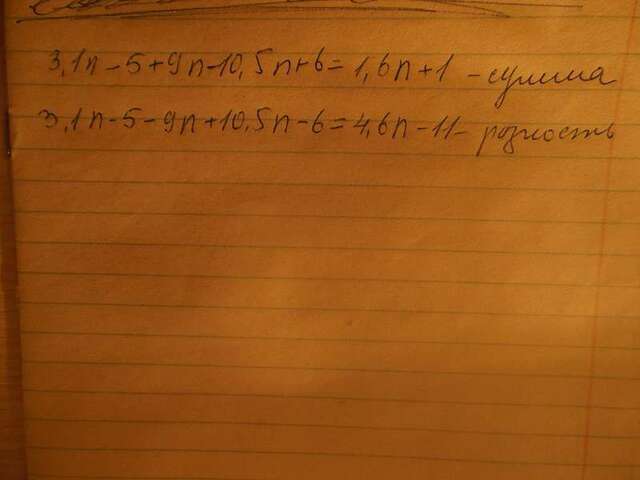 3,1n-5+9n-10,5n+6=1,6n+1 - сумма
3,1n-5-9n+10,5n-6=4,6n-11- розность